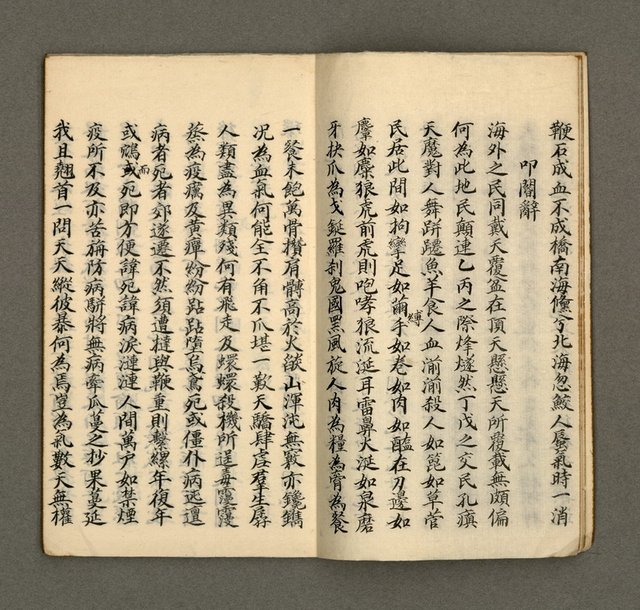 鞭石成血不成橋南海儵兮北海忽鮫人蜃氣時一消
叩閽辭
海外之民同戴天覆盆在頂天懸懸天所覆載無頗偏
何為此地民顛連乙丙之際烽燧然丁戊之交民孔瘨
天魔對人舞跰躚魚羊食人血湔湔殺人如篦如草菅
民居此間如拘攣足如繭手縛如卷如肉如醢在刀邊如
麏如麋狼虎前虎則咆哮狼流涎耳雷鼻火涎如泉磨
牙抉爪為戈鋋羅剎鬼國黑風旋人肉為糧為膏為餐
一餐未飽萬骨攢肩髀高於火燄山渾沌無竅亦鑱鐫
况為血氣何能全不角不爪堪一歎天驕肆虐羣生孱
人類盡為異類殘何有飛走及蠉蠕殺機所逞毒靄霾
蒸為疫癘及黃癉紛紛跕跕墮烏鳶死或僵仆病迍邅
病者死者郊遂遷不然須遭撻與鞭重則繫縲年復年
或鴆而或死即方便諱死諱病淚漣漣人間萬户如禁煙
疫所不及亦苦旃防病駢將無病牽瓜蔓之抄果蔓延
我且翹首一問天天縱彼暴何為焉豈為氣數天無權